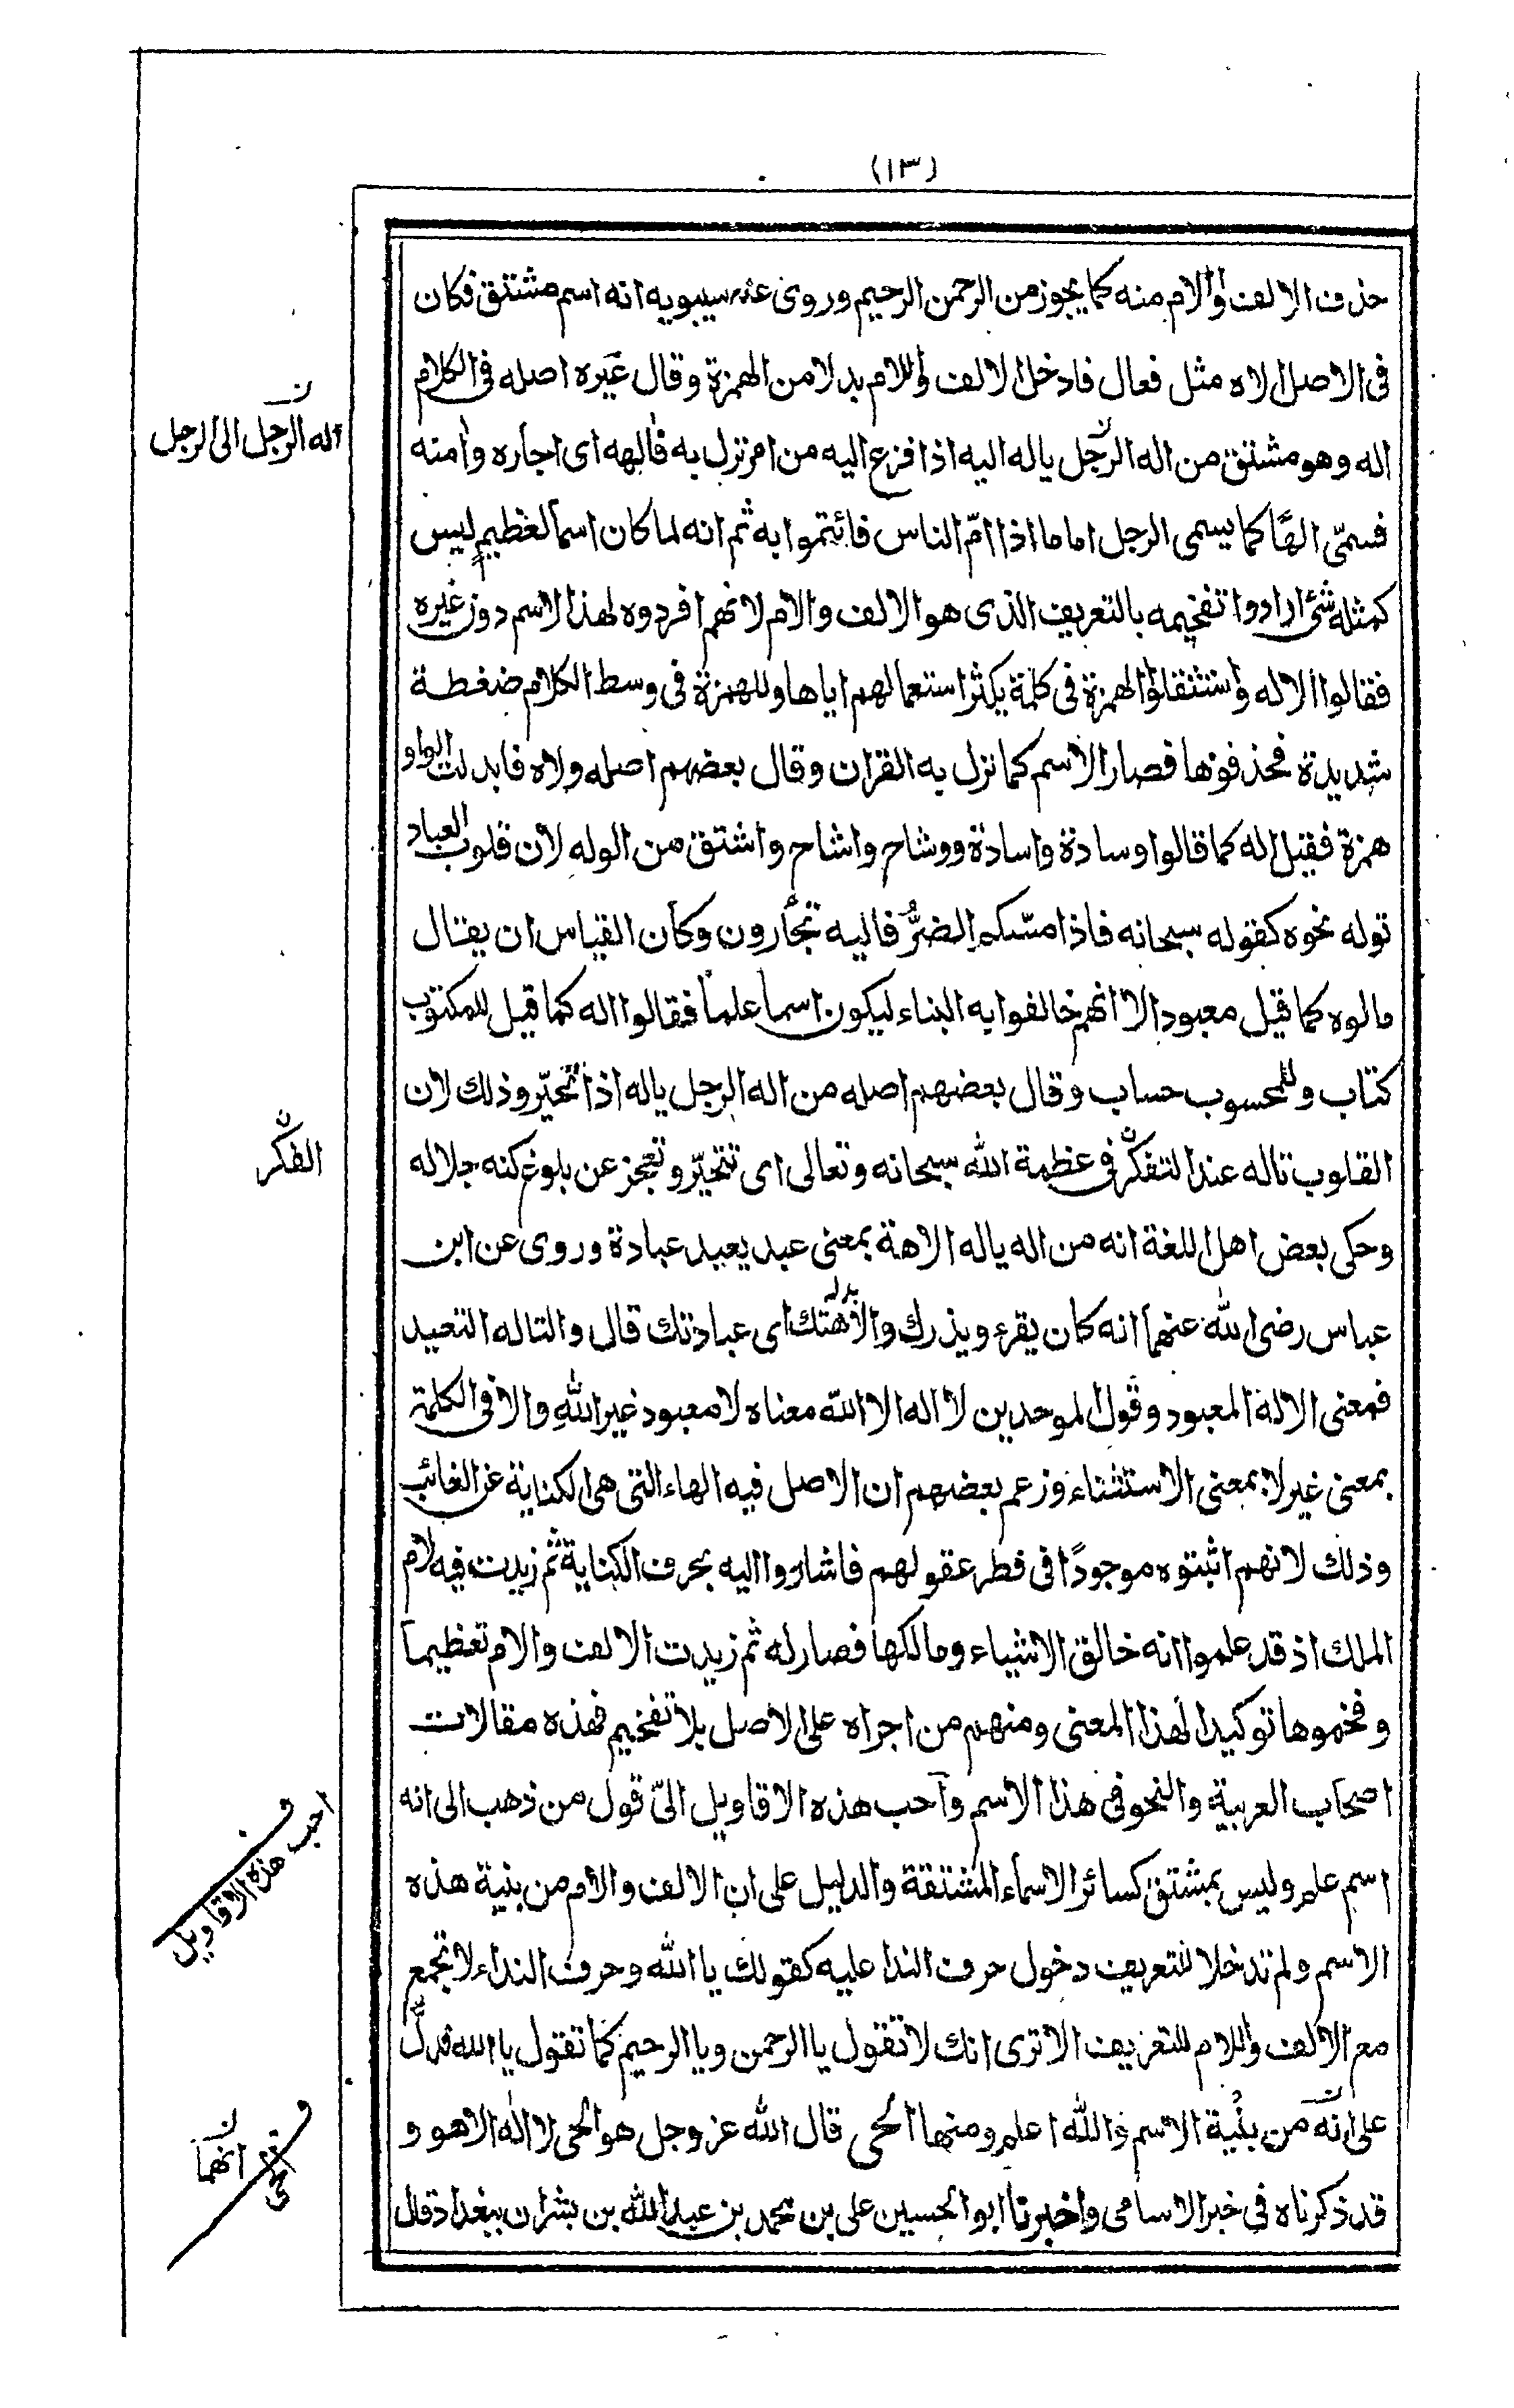 (١٣)
حذف الالف والام منه كما يجوز من الرحمن الرحيم وروى عن سيبويه انه اسم مشتق فكان
فى الاصل الاه مثل فعال فادخل الالف واللام بدلا من الهمزة وقال غيره اصله فى الكلام
اله وهو مشتق من اله الرجل ياله اليه اذا فزع اليه من امر نزل به فالهه اى اجاره وامنه
فسمّى الهًا كما يسمى الرجل اماما اذا امّ الناس فائتموا به ثم انه لما كان اسما لعظيمٍ ليس
كمثله شئ ارادوا تفخيمه بالتعريف الذى هو الالف والام لانهم افردوه لهذا الاسم دون غيره
فقالوا الاله واستثقلوا الهمزة فى كلمة يكثر استعمالهم اياها وللهمزة فى وسط الكلام ضغطة
شديدة فحذفوها فصار الاسم كما نزل به القران وقال بعضهم اصله ولاه فابدلت الواو
همزة فقيل اله كما قالوا وسادة واسادة ووشاح واشاح واشتق من الوله لان قلوب العباد
توله نحوه كقوله سبحانه فاذا مسّكم الضرُّ فاليه تجأرون وكان القياس ان يقال
مالوه كما قيل معبود الا انهم خالفوا به البناء ليكون اسما علما فقالوا اله كما قيل للمكتوب
كتاب وللمحسوب حساب وقال بعضهم اصله من اله الرجل ياله اذا تحيّر وذلك لان
القلوب تاله عند التفكّر فى عظمة الله سبحانه وتعالى اى تتحيّر وتعجز عن بلوغ كنه جلاله
وحكى بعض اهل اللغة انه من اله ياله الاهة بمعنى عبد يعبد عبادة وروى عن ابن
عباس رضى الله عنهما انه كان يقرء ويذرك والاهتك اى عبادتك قال والتاله التعبد
فمعنى الاله المعبود وقول الموحدين لا اله الا الله معناه لا معبود غير اللهِ والا فى الكلمة
بمعنى غير لا بمعنى الاستثناء وزعم بعضهم ان الاصل فيه الهاء التى هى الكناية عن الغائب
وذلك لانهم اثبتوه موجودًا فى فطر عقولهم فاشاروا اليه بحرف الكناية ثم زيدت فيه لام
الملك اذ قد علموا انه خالق الاشياء ومالكها فصار له ثم زيدت الالف والام تعظيما
وفخموها توكيدا لهذا المعنى ومنهم من اجراه على الاصل بلا تفخيم فهذه مقالات
اصحاب العربية والنحو فى هذا الاسم واحب هذه الاقاويل الىّ قول من ذهب الى انه
اسم علم وليس بمشتق كسائر الاسماء المشتقة والدليل على ان الالف والام من بنية هذه
الاسم ولم تدخلا للتعريف دخول حرف الندا عليه كقولك يا الله وحرف النداء لا تجمع
مع الالف واللام للتعريف الا ترى انك لا تقول يا الرحمن ويا الرحيم كما تقول يا الله فدلّ
على انه من بنية الاسم والله اعلم ومنها الحى قال الله عز وجل هو الحى لا اله الا هو و
قد ذكرناه فى خبر الاسامى واخبرنا ابو الحسين على بن محمد بن عبد الله بن بشران ببغداد قال
ن
اله الرجل الى الرجل
ن
الفكّر
احب هذه الاقاويل
ن
انهما